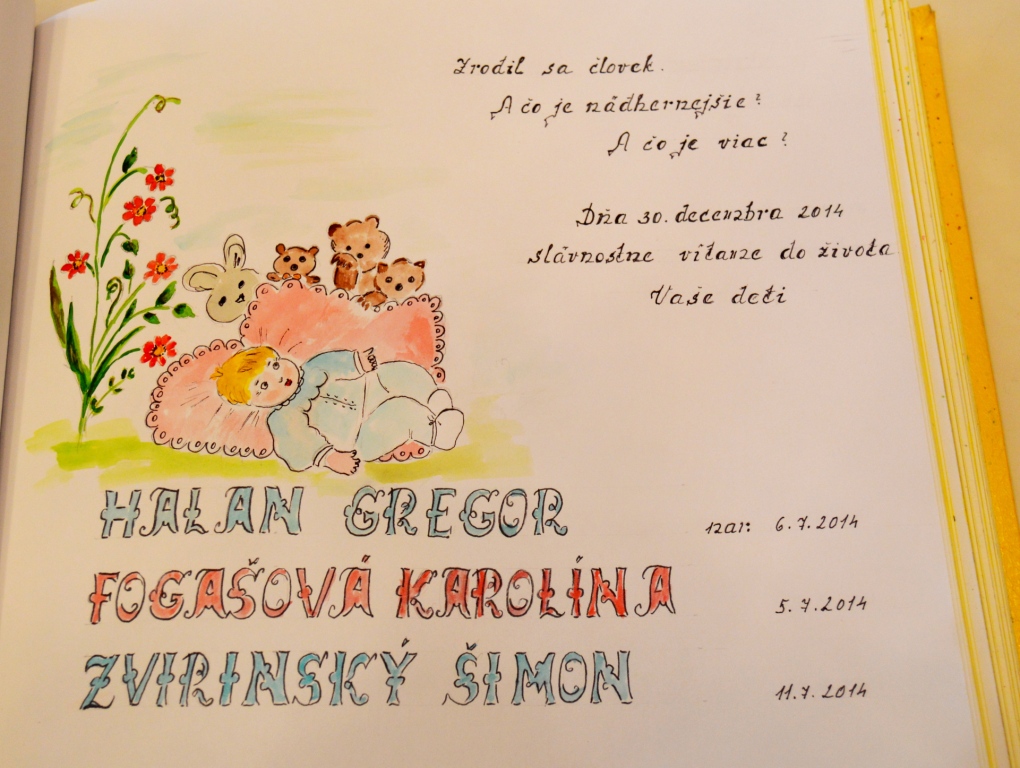 Zrodil sa človek.
A čo je nádhernejšie?
A čo je viac?
Dňa 30. decembra 2014
slávnostne vítame do života
Vaše deti
HALAN GREGOR nar: 6.7.2014
FOGAŠOVÁ KAROLÍNA 5.7.2014
ZVIRINSKÝ ŠIMON 11.7.2014